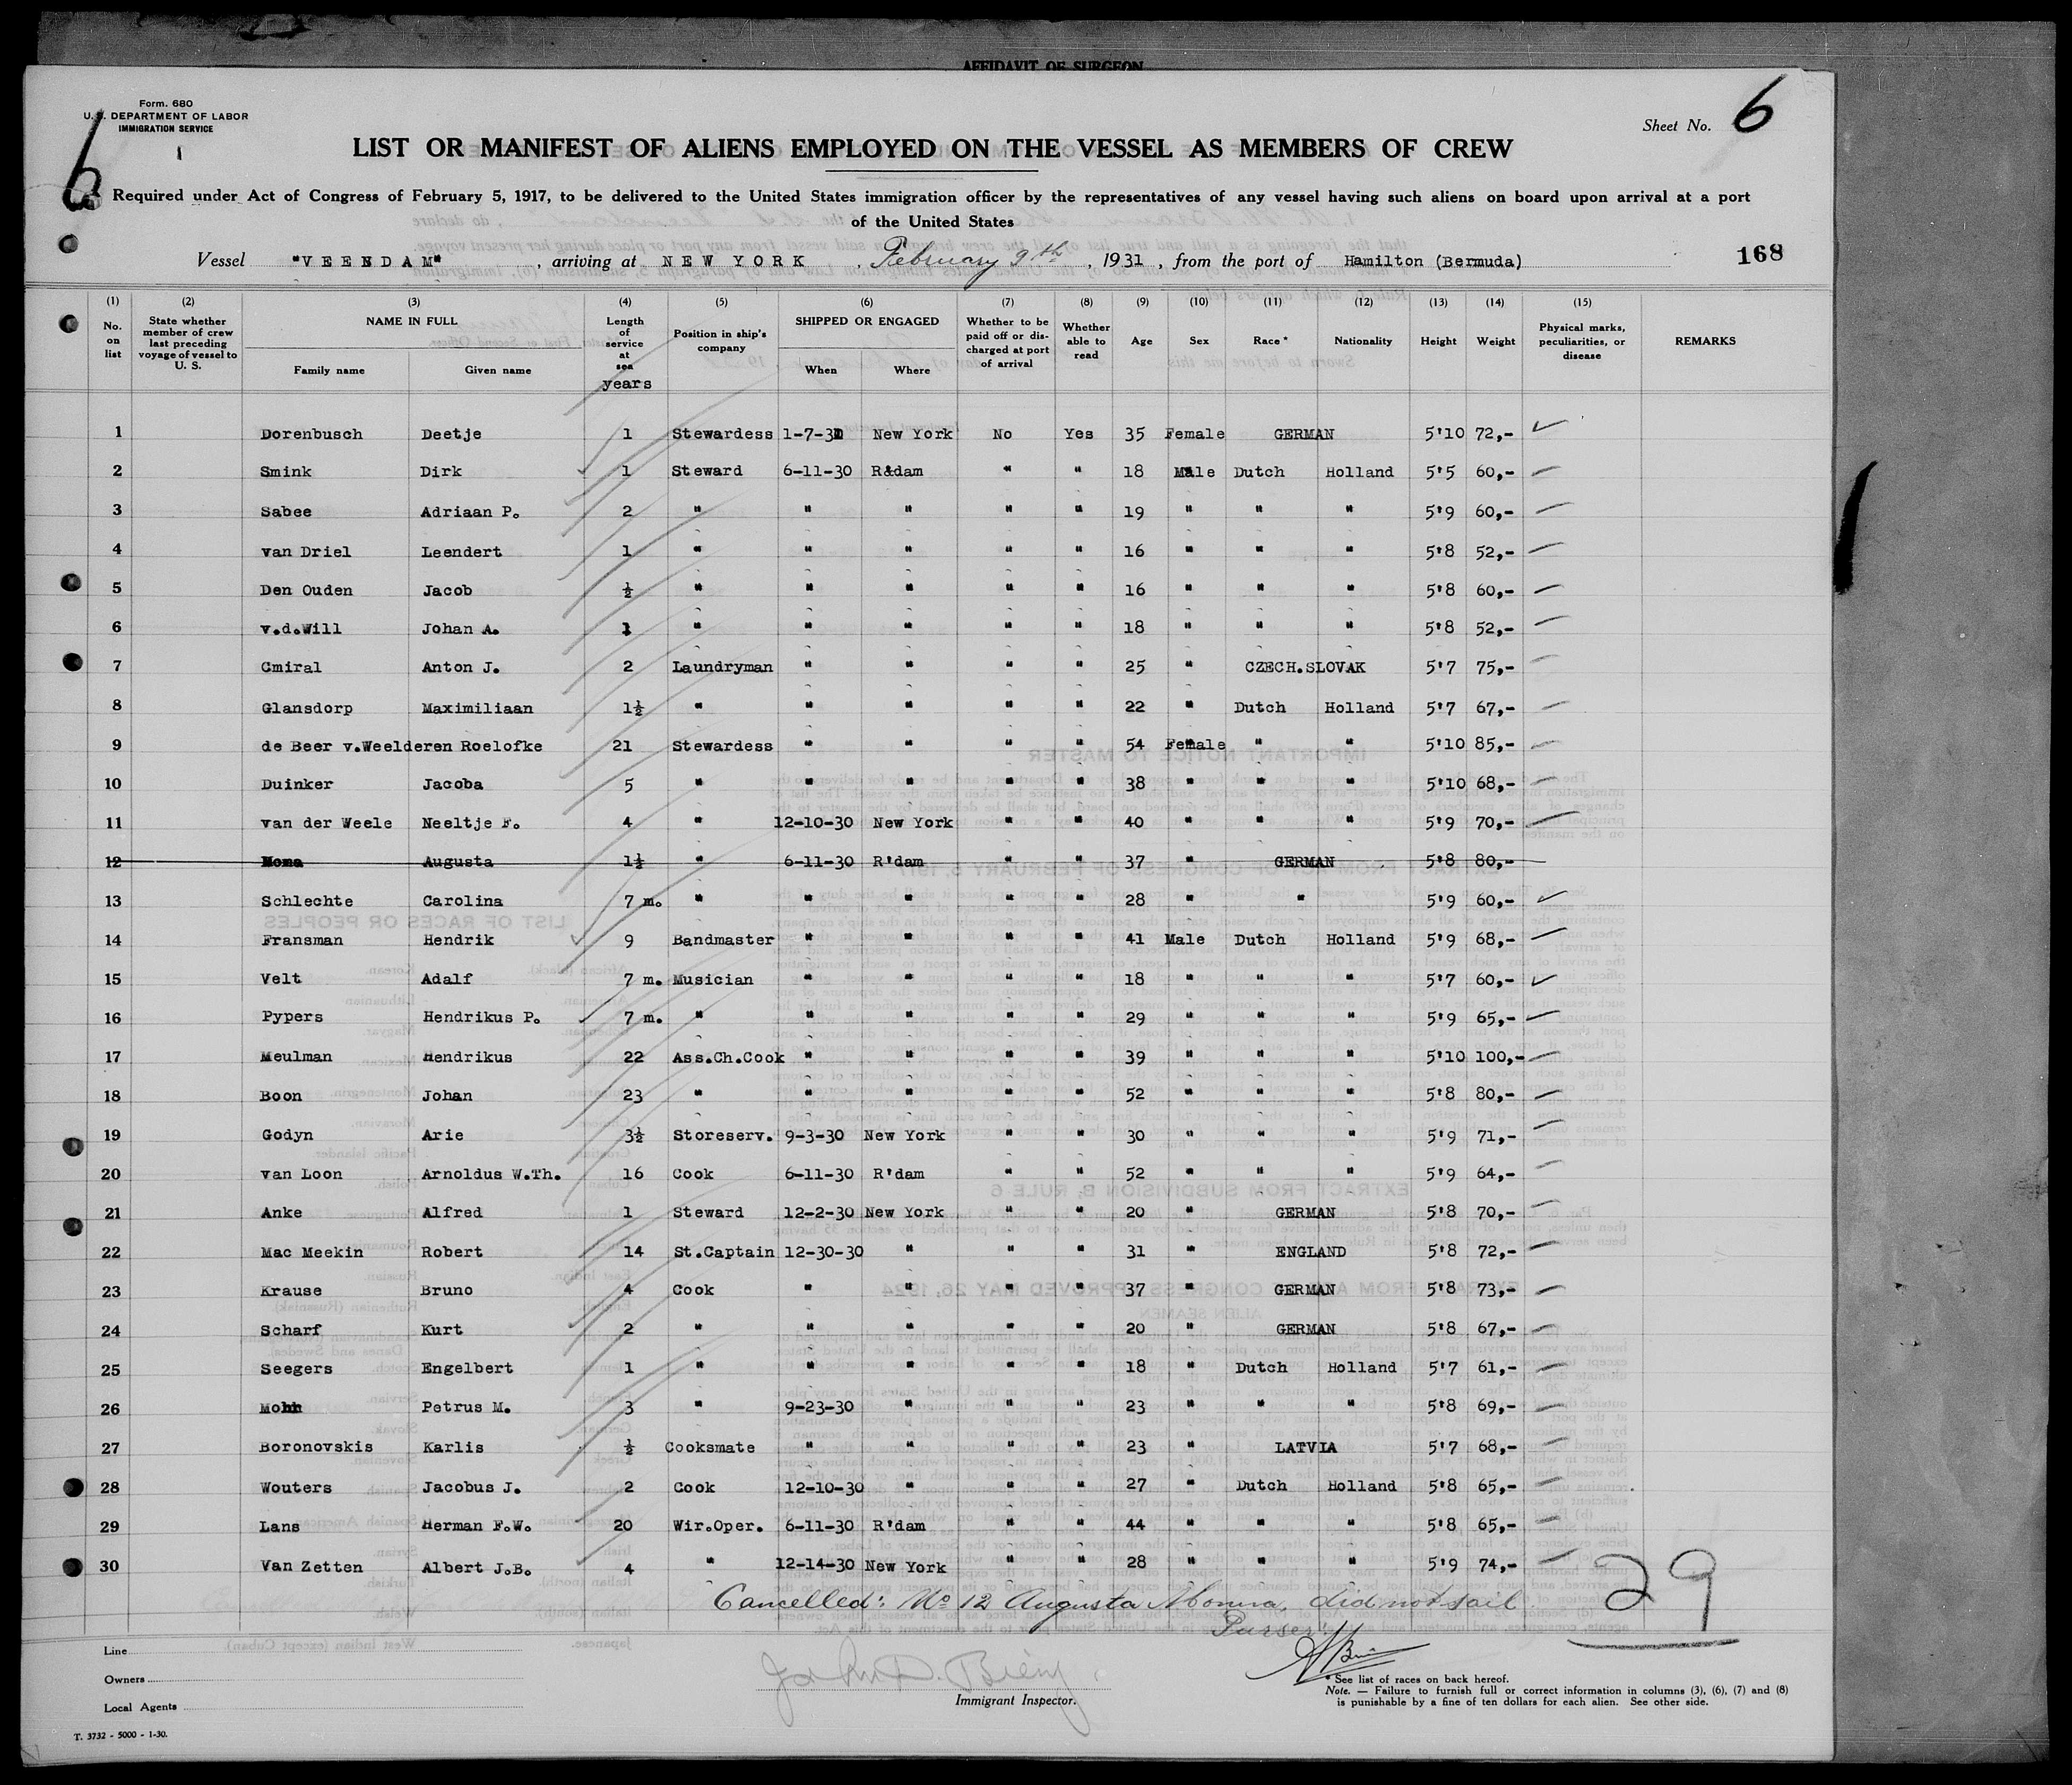 AFFIDAVIT OF SURGEON
Form. 680
U. S. DEPARTMENT OF LABOR
IMMIGRATION SERVICE
6
Sheet No. 6
LIST OR MANIFEST OF ALIENS EMPLOYED ON THE VESSEL AS MEMBERS OF CREW
Required under Act of Congress of February 5, 1917, to be delivered to the United States immigration officer by the representatives of any vessel having such aliens on board upon arrival at a port
of the United States
Vessel "VEENDAM", arriving at NEW YORK, February 9th, 1931, from the port of Hamilton (Bermuda) 168
(1) (2) (3) (4) (5) (6) (7) (8) (9) (10) (11) (12) (13) (14) (15)
No. on list State whether member of crew last preceding voyage of vessel to U. S. NAME IN FULL Family name Given name Length of service at sea years Position in ship's company SHIPPED OR ENGAGED When Where Whether to be paid off or discharged at port of arrival Whether able to read Age Sex Race * Nationality Height Weight Physical marks, peculiarities, or disease REMARKS
1 Dorenbusch Deetje 1 Stewardess 1-7-31 New York No Yes 35 Female GERMAN 5'10 72,-
2 Smink Dirk 1 Steward 6-11-30 R&dam " " 18 Male Dutch Holland 5'5 60,-
3 Sabee Adriaan P. 2 " " " " " 19 " " " 5'9 60,-
4 van Driel Leendert 1 " " " " " 16 " " " 5'8 52,-
5 Den Ouden Jacob ½ " " " " " 16 " " " 5'8 60,-
6 v.d.Will Johan A. 1 " " " " " 18 " " " 5'8 52,-
7 Cmiral Anton J. 2 Laundryman " " " " 25 " CZECH.SLOVAK 5'7 75,-
8 Glansdorp Maximiliaan 1½ " " " " " 22 " Dutch Holland 5'7 67,-
9 de Beer v.Weelderen Roelofke 21 Stewardess " " " " 54 Female " " 5'10 85,-
10 Duinker Jacoba 5 " " " " " 38 " " " 5'10 68,-
11 van der Weele Neeltje F. 4 " 12-10-30 New York " " 40 " " " 5'9 70,-
12 Moma Augusta 1½ " 6-11-30 R'dam " " 37 " GERMAN 5'8 80,-
13 Schlechte Carolina 7 m. " " " " " 28 " " 5'9 60,-
14 Fransman Hendrik 9 Bandmaster " " " " 41 Male Dutch Holland 5'9 68,-
15 Velt Adalf 7 m. Musician " " " " 18 " " " 5'7 60,-
16 Pypers Hendrikus P. 7 m. " " " " " 29 " " " 5'9 65,-
17 Meulman Hendrikus 22 Ass.Ch.Cook " " " " 39 " " " 5'10 100,-
18 Boon Johan 23 " " " " " 52 " " " 5'8 80,-
19 Godyn Arie 3½ Storeserv. 9-3-30 New York " " 30 " " " 5'9 71,-
20 van Loon Arnoldus W.Th. 16 Cook 6-11-30 R'dam " " 52 " " " 5'9 64,-
21 Anke Alfred 1 Steward 12-2-30 New York " " 20 " GERMAN 5'8 70,-
22 Mac Meekin Robert 14 St.Captain 12-30-30 " " " 31 " ENGLAND 5'8 72,-
23 Krause Bruno 4 Cook " " " " 37 " GERMAN 5'8 73,-
24 Scharf Kurt 2 " " " " " 20 " GERMAN 5'8 67,-
25 Seegers Engelbert 1 " " " " " 18 " Dutch Holland 5'7 61,-
26 Petrus M. 3 " 9-23-30 " " " 23 " " " 5'8 69,-
27 Boronovskis Karlis ½ Cooksmate " " " " 23 " LATVIA 5'7 68,-
28 Wouters Jacobus J. 2 Cook 12-10-30 " " " 27 " Dutch Holland 5'8 65,-
29 Lans Herman F.W. 20 Wir.Oper. 6-11-30 R'dam " " 44 " " " 5'8 65,-
30 Van Zetten Albert J.B. 4 " 12-14-30 New York " " 28 " " " 5'9 74,-
Cancelled: No 12 Augusta Moma, did not sail. 29
Purser.
Line
Owners
Local Agents
Immigrant Inspector.
* See list of races on back hereof.
Note. — Failure to furnish full or correct information in columns (3), (6), (7) and (8)
is punishable by a fine of ten dollars for each alien. See other side.
T. 3732 - 5000 - 1-30.